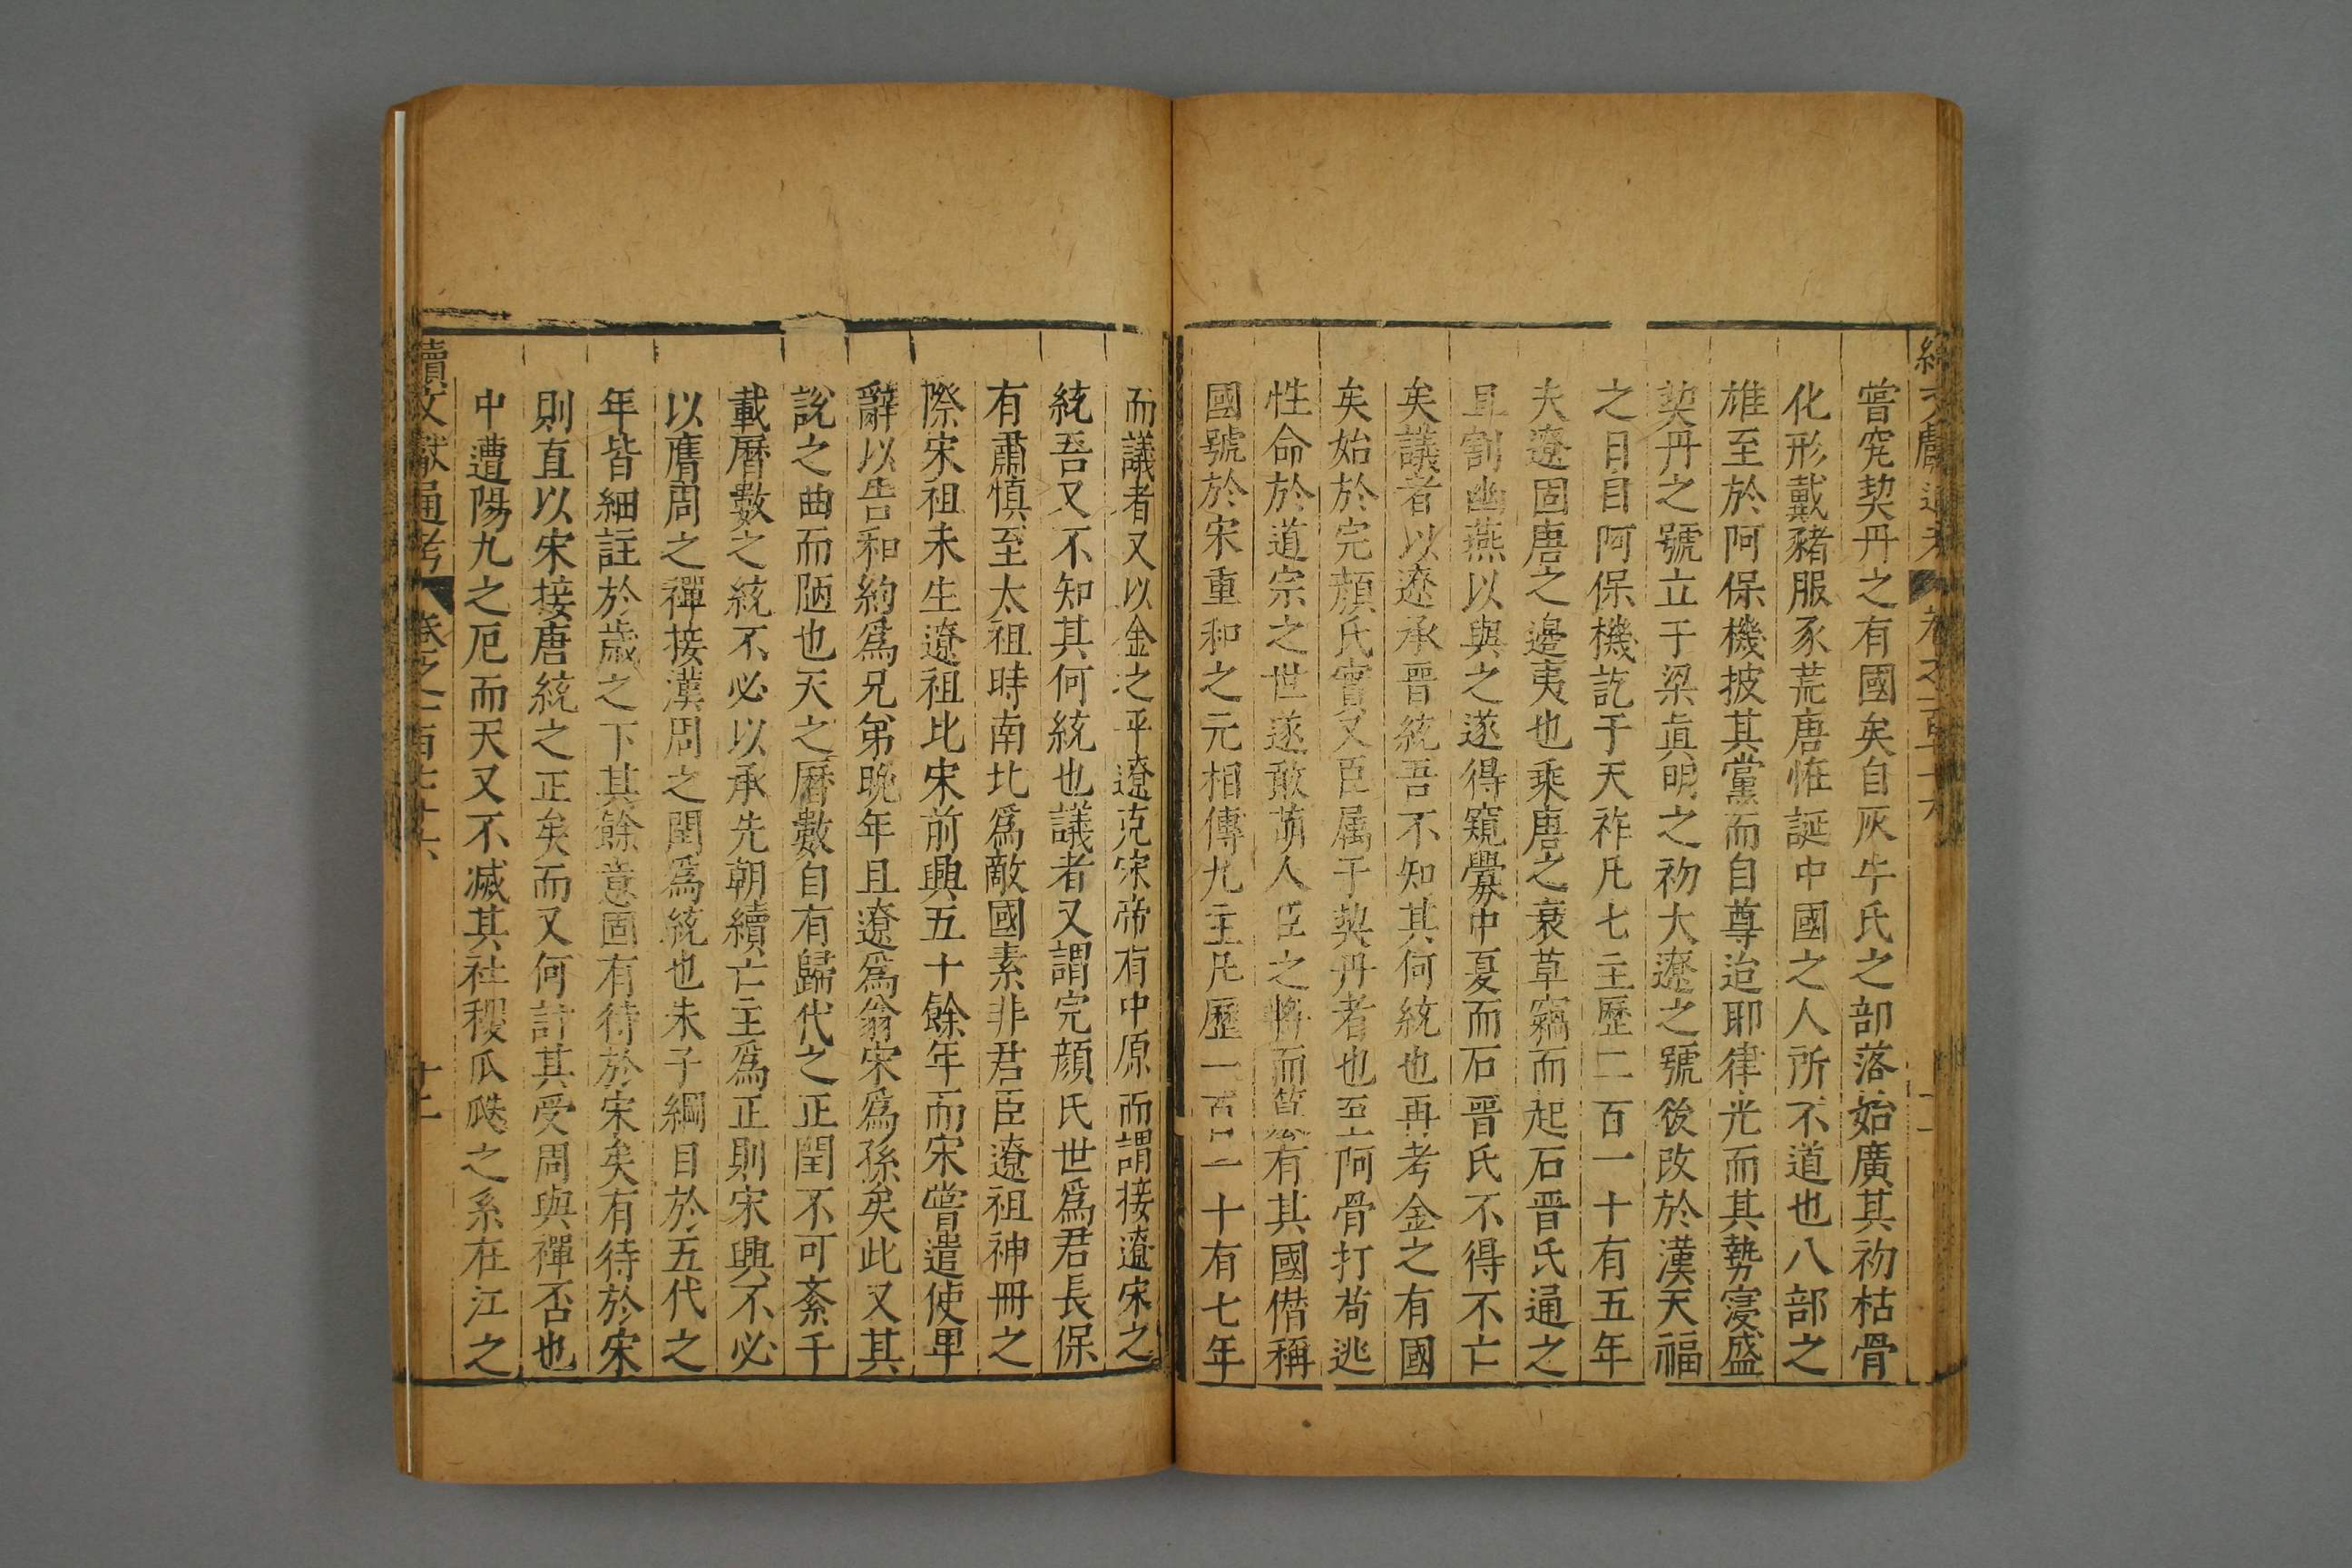 嘗究契丹之有國矣自灰牛氏之部落始廣其初枯骨
化形戴豬服豕荒唐恠誕中國之人所不道也八部之
雄至於阿保機披其黨而自尊迨耶律光而其勢寖盛
契丹之號立于梁眞明之初大遼之號後改於漢天福
之日自阿保機訖于天祚凡七主歷二百一十有五年
夫遼固唐之邊夷也乘唐之衰草竊而起石晋氏通之
且割幽燕以與之遂得窺釁中夏而石晋氏不得不亡
矣議者以遼承晋統吾不知其何統也再考金之有國
矣始於完顏氏實又臣属于契丹者也至阿骨打苟逃
性命於道宗之世遂敢萌人臣之將而簒有其國僣稱
國號於宋重和之元相傳九主凡歷一百二十有七年
而議者又以金之平遼克宋帝有中原而謂接遼宋之
統吾又不知其何統也議者又謂完顔氏世爲君長保
有肅慎至太祖時南北爲敵國素非君臣遼祖神冊之
際宋祖未生遼祖比宋前興五十餘年而宋嘗遣使卑
辭以告和約爲兄弟晚年且遼爲翁宋爲孫矣此又其
說之曲而陋也天之曆數自有歸代之正閏不可紊千
載曆數之統不必以承先朝續亡主爲正則宋興不必
以膺周之禪接漢周之閏爲統也朱子綱目於五代之
年皆細註於歳之下其餘意固有待於宋矣有待於宋
則直以宋接唐統之正矣而又何計其受周與禪否也
中遭陽九之厄而天又不滅其社稷瓜瓞之系在江之
續文獻通考 卷之一百七十六 十二